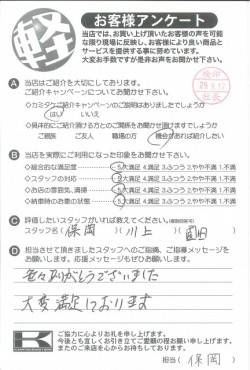 軽
お客様アンケート
当店では、お買い上げ頂いたお客様の声を可能
な限り現場に反映し、お客様により良い商品と
サービスを提供する事に努めています。
大変お手数ですが是非お声をお聞かせ下さい。
A 当店はご紹介を大切にしております。
ご紹介キャンペーンについてお聞かせ下さい。
◇カミタケご紹介キャンペーンのご説明はありましたでしょうか
はい いいえ
◇具体的にご紹介頂ける方とのご関係をお聞かせ頂けますでしょうか
ご親族 ご友人 職場の方 機会があれば紹介したい
B 当店を実際にご利用になった印象をお聞かせ下さい。
◇総合的な満足度 5.大満足 4.満足 3.ふつう 2.やや不満 1.不満
◇スタッフの対応 5.大満足 4.満足 3.ふつう 2.やや不満 1.不満
◇お店の雰囲気、清掃 5.大満足 4.満足 3.ふつう 2.やや不満 1.不満
◇納車時のお車の状態 5.大満足 4.満足 3.ふつう 2.やや不満 1.不満
C 評価したいスタッフがいれば教えてください。
スタッフ名( 保岡 )( 川上 )( 園田 )
D 担当させて頂きましたスタッフへのご指摘、ご指導メッセージを
お願いします。応援メッセージもぜひお願いします。
ありがとうございました
大変満足しております
K
ご協力に心よりお礼を申し上げます。
今後とも宜しくお引き立てとご愛顧の程お願い申し上げます。
またのご来店を心からお待ちしております。
担当( 保岡 )